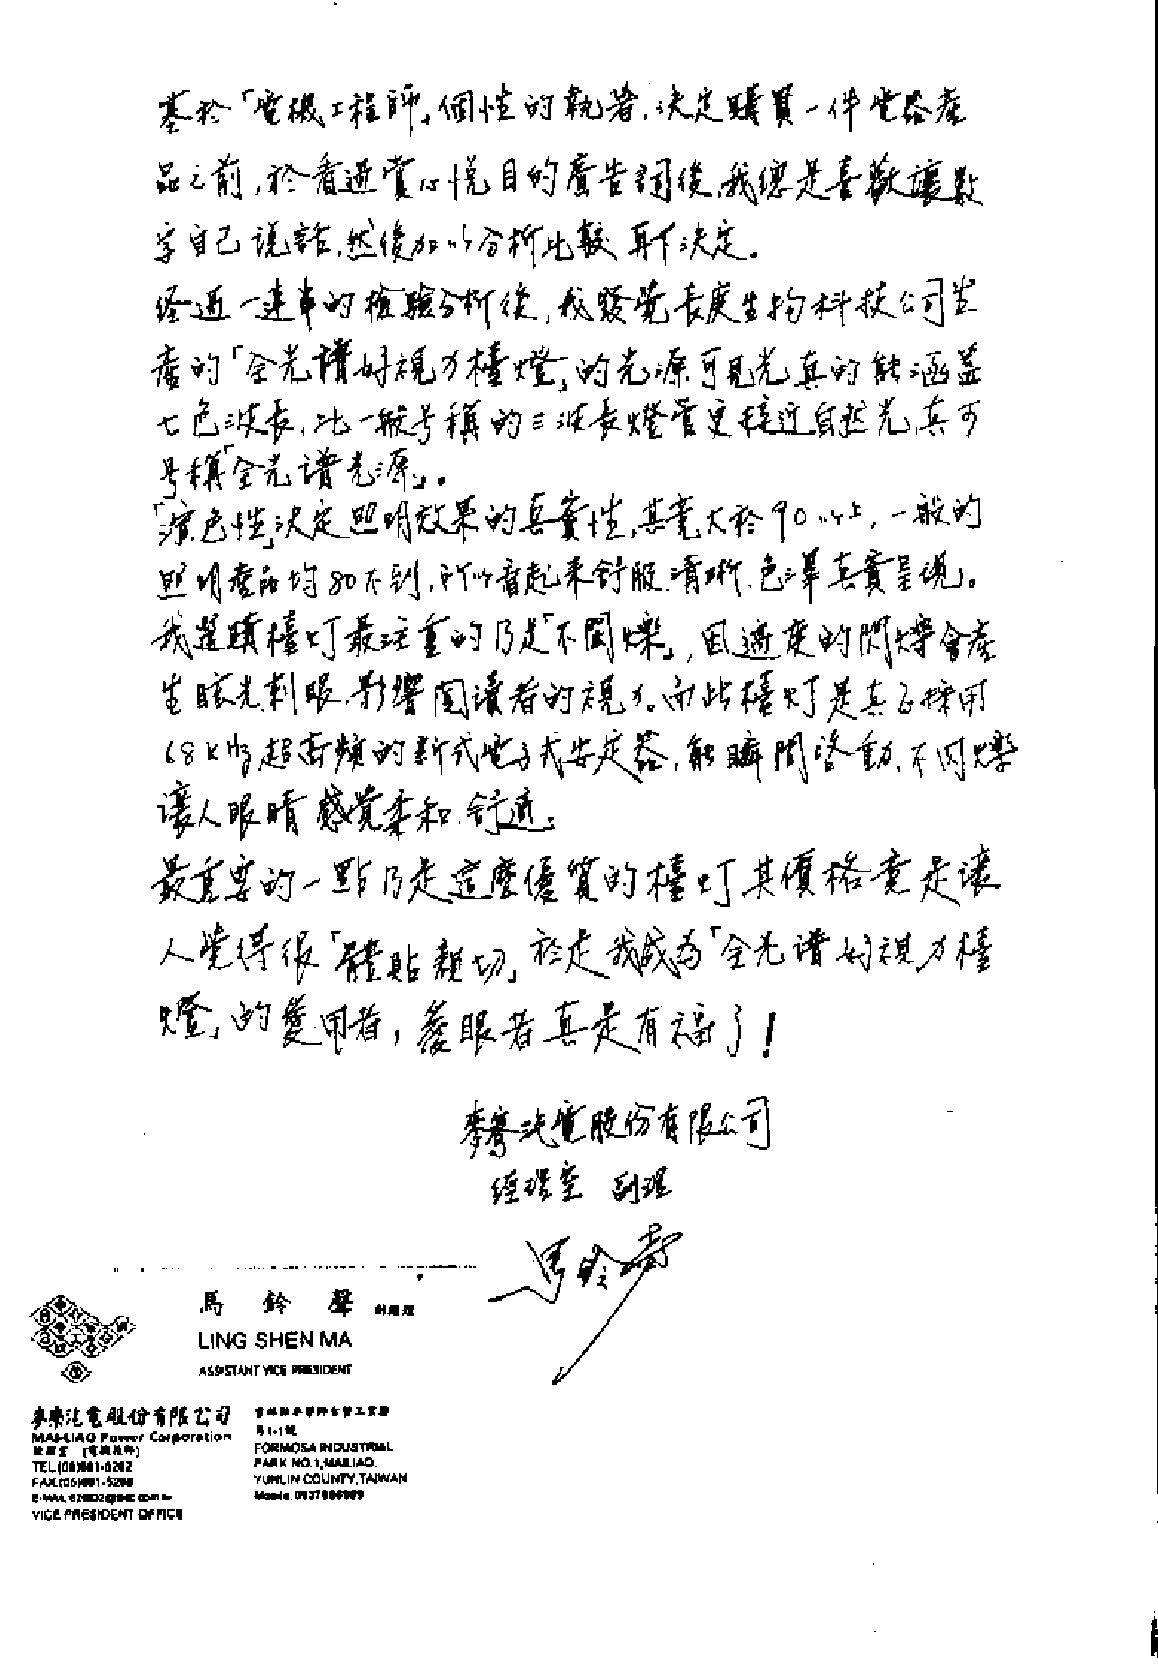 基於「電機工程師」個性的執著,決定購買一件電器產
品之前,於看過賞心悅目的廣告詞後,我總是喜歡讓數
字自己說話,然後加以分析比較,再下決定。
經過一連串的檢驗分析後,我發覺長庚生物科技公司生
產的「全光譜好視力檯燈」的光源可見光真的能涵蓋
七色波長,比一般号稱的三波長燈管更接近自然光,真可
号稱「全光譜光源」。
「演色性」決定照明效果的真實性,其竟大於90以上,一般的
照明產品均80不到,所以看起來舒服、清晰、色澤真實呈現。
我選購檯灯最注重的乃是「不閃爍」,因過度的閃爍會產
生眩光刺眼,影響閱讀者的視力。而此檯灯是真正採用
68KHz超高頻的新式電子式安定器,能瞬間啓動,不閃爍
讓人眼睛感覺柔和、舒適。
最重要的一點乃是這麼優質的檯灯其價格竟是讓
人覺得很「體貼親切」於是我成為「全光譜好視力檯
燈」的愛用者,愛眼者真是有福了!
麥寮汽電股份有限公司
經理室 副理
馬鈴聲
馬 鈴 聲
LING SHEN MA
ASSISTANT VICE PRESIDENT
麥寮汽電股份有限公司
MAI-LIAO Power Corporation
FORMOSA INDUSTRIAL
PARK NO.1, MAILIAO.
YUNLIN COUNTY, TAIWAN
VICE PRESIDENT OFFICE